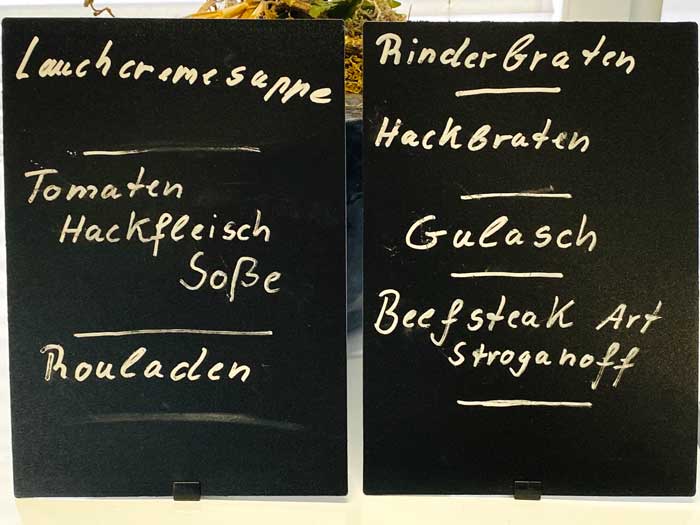 Lauchcremesuppe
Tomaten
Hackfleisch
Soße
Rouladen
Rinderbraten
Hackbraten
Gulasch
Beefsteak Art
Stroganoff